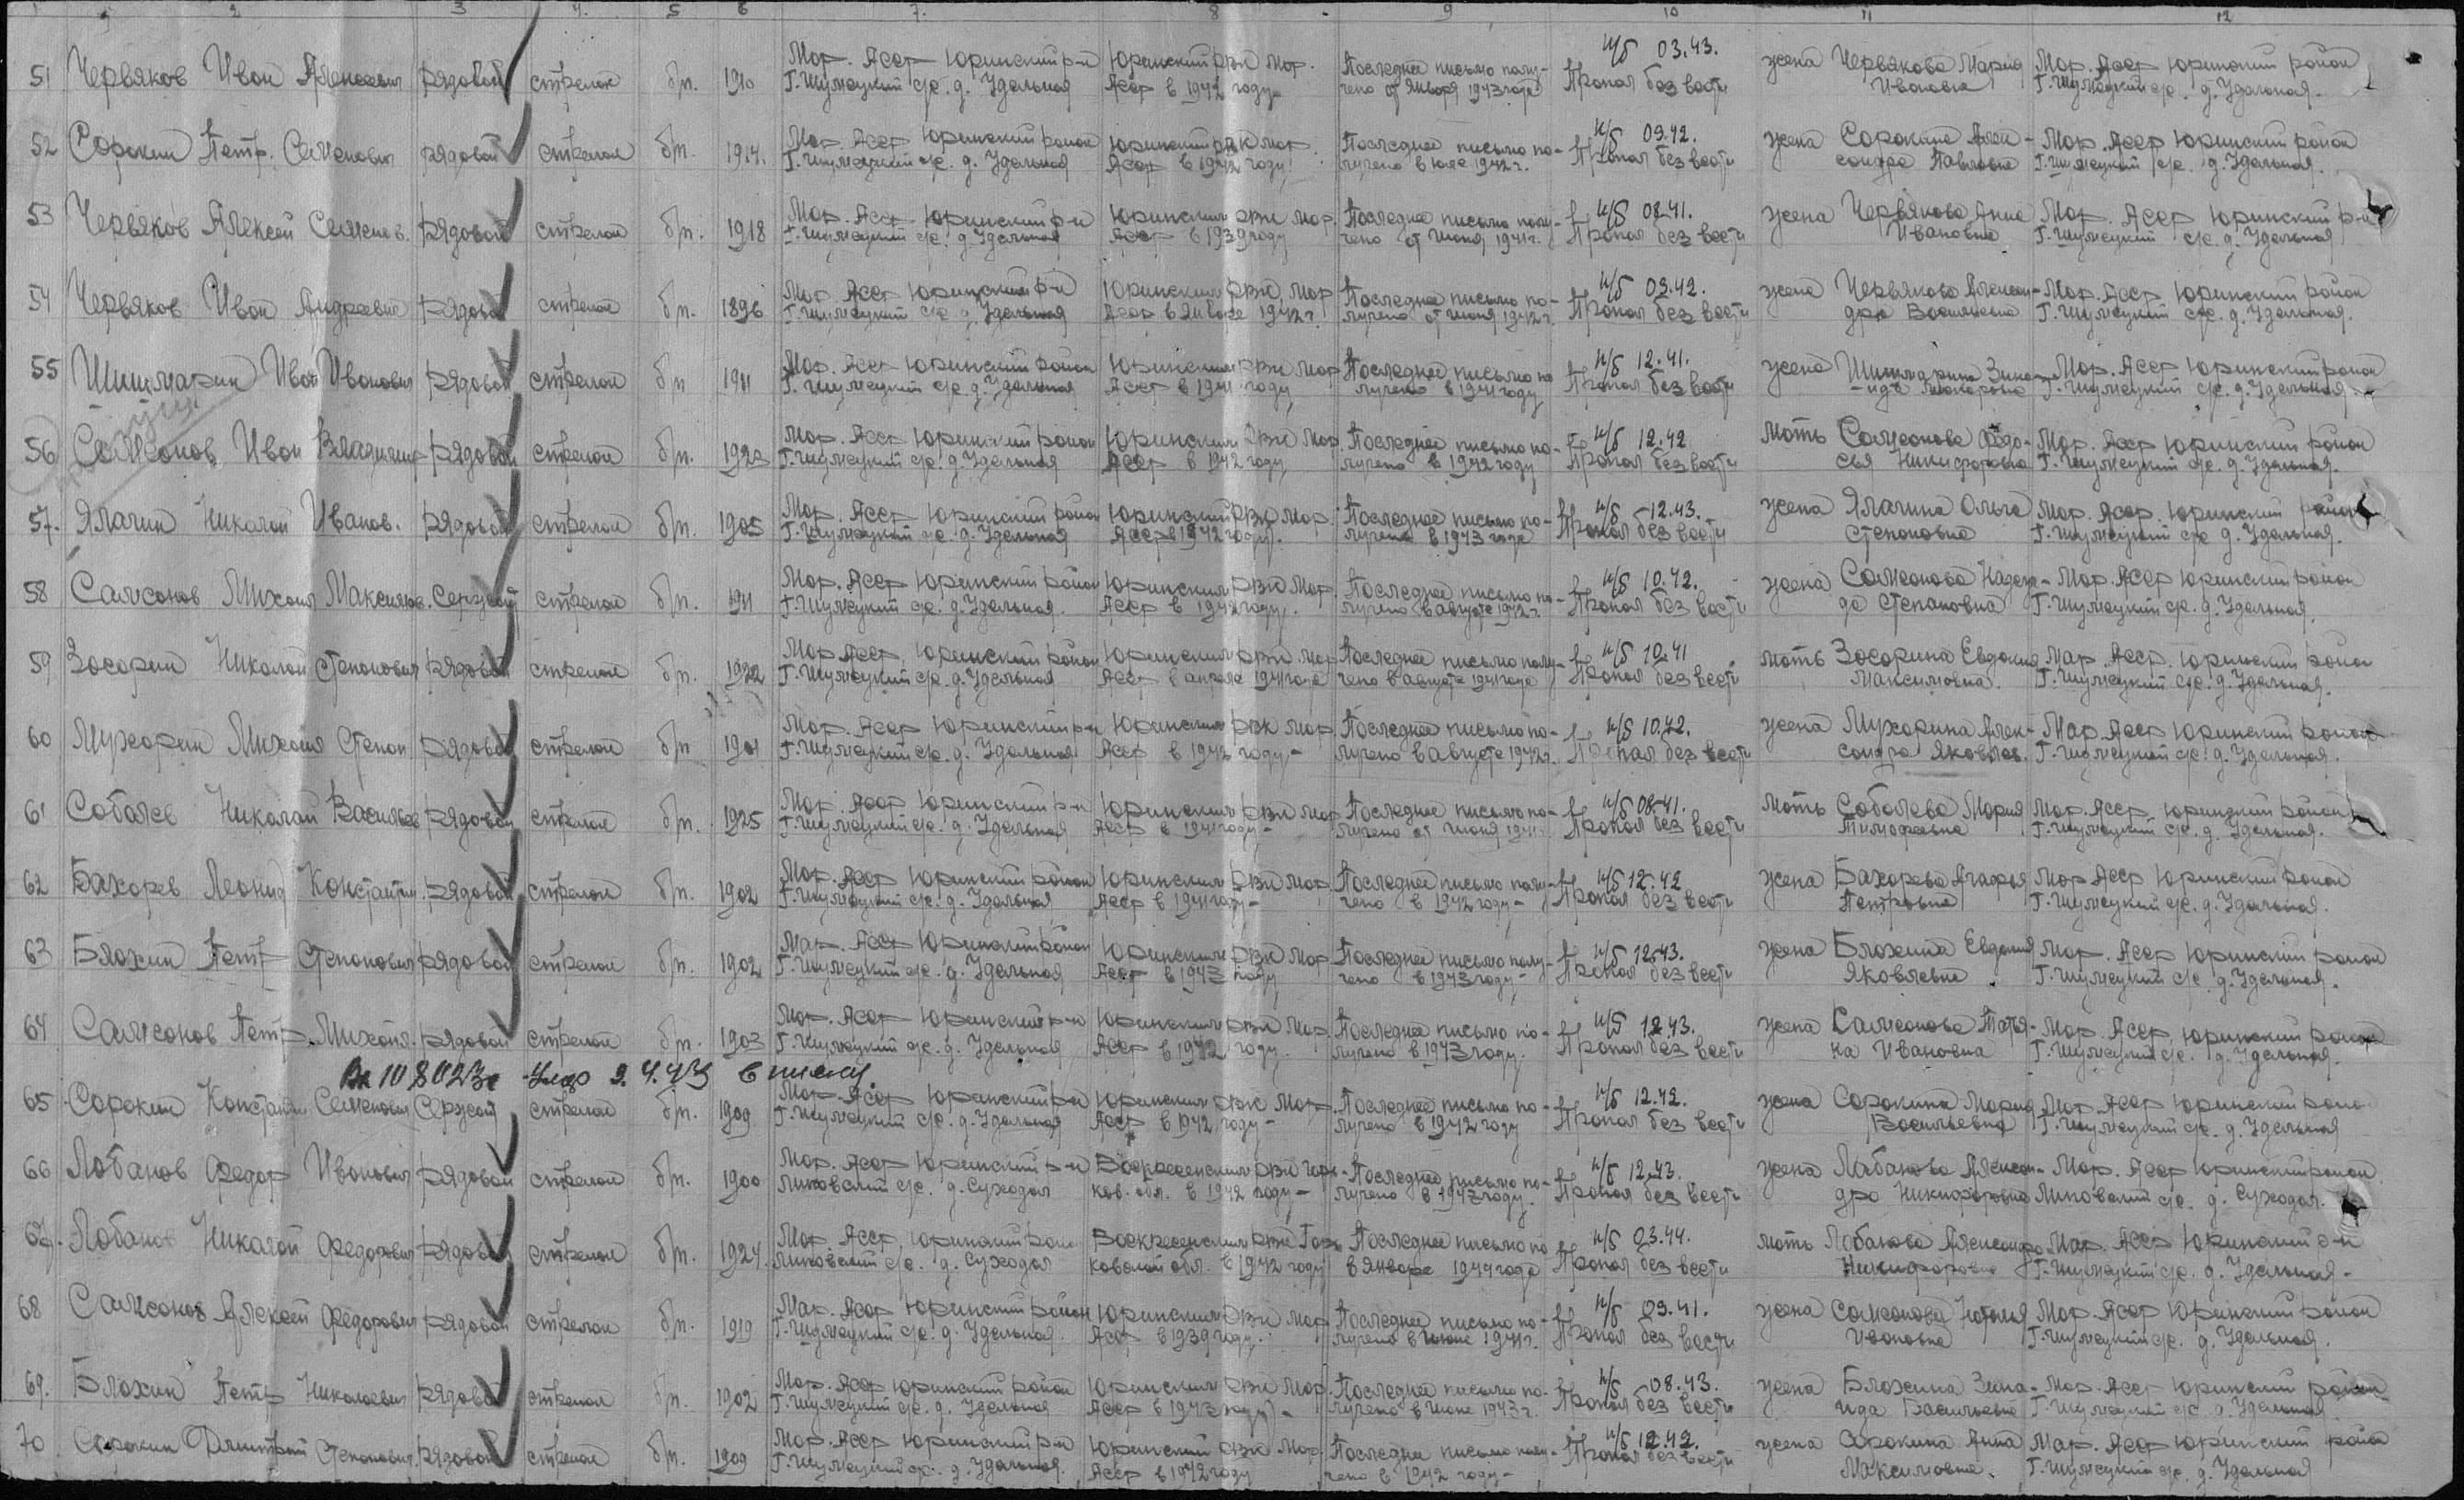 1 2 3 4. 5 6 7. 8 9 10 11 12
51 Червяков Иван Алексеевич рядовой стрелок б/п. 1910 Мар. Асср Юринский р-н Юринский рвк Мар. Последнее письмо полу- н/б 03.43. жена Червякова Мария Мар. Асср Юринский район
Г-Шумецкий с/с. д. Удельная Асср в 1942 году чено от Января 1943 года Пропал без вести Ивановна Г-Шумецкий с/с. д. Удельная.
52 Сорокин Петр. Семенович рядовой стрелок б/п. 1914. Мар. Асср Юринский район Юринский рвк Мар. Последнее письмо по- н/б 09.42. жена Сорокина Алек- Мар. Асср Юринский район
Г-Шумецкий с/с. д. Удельная Асср в 1942 году лучено в 1942 г. Пропал без вести сандра Павловна Г-Шумецкий с/с. д. Удельная.
53 Червяков Алексей Семенов. рядовой стрелок б/п. 1918 Мар. Асср Юринский р-н Юринский рвк Мар. Последнее письмо полу- н/б 08.41. жена Червякова Анна Мар. Асср Юринский р-н
Г-Шумецкий с/с. д. Удельная Асср в 1939 году чено от Июня 1941 г. Пропал без вести Ивановна Г-Шумецкий с/с. д. Удельная
54 Червяков Иван Андреевич рядовой стрелок б/п. 1896 Мар. Асср Юринский р-н Юринский рвк Мар Последнее письмо по- н/б 09.42. жена Червякова Алексан- Мар. Асср Юринский район
Г-Шумецкий с/с д. Удельная Асср в Январе 1942 г. лучено от Июня 1942 г. Пропал без вести дра Васильевна Г-Шумецкий с/с. д. Удельная.
55 Шишмарин Иван Иванович рядовой стрелок б/п 1911 Мар. Асср Юринский район Юринский рвк Мар Последнее письмо по н/б 12.41. жена Шишмарина Зина- Мар. Асср Юринский район
Г-Шумецкий с/с. д. Удельная Асср в 1941 году лучено в 1941 году Пропал без вести -ида Макаровна Г-Шумецкий с/с. д. Удельная.
56 Самсонов Иван Владимир рядовой стрелок б/п. 1923 Мар. Асср Юринский район Юринский рвк Мар. Последнее письмо по- н/б 12.42 мать Самсонова Федо- Мар. Асср Юринский район
Г-Шумецкий с/с. д. Удельная Асср в 1942 году лучено в 1942 году Пропал без вести сья Никифоровна Г-Шумецкий с/с. д. Удельная.
57. Ялагин Николай Иванов. рядовой стрелок б/п. 1905 Мар. Асср Юринский район Юринский рвк Мар. Последнее письмо по- н/б 12.43. жена Ялагина Ольга Мар. Асср Юринский район
Г-Шумецкий с/с. д. Удельная Асср в 1942 году. лучено в 1943 году Пропал без вести Степановна Г-Шумецкий с/с д. Удельная.
58 Самсонов Михаил Максимов. Сержант стрелок б/п. 1911 Мар. Асср Юринский район Юринский рвк Мар. Последнее письмо по- н/б 10.42. жена Самсонова Надеж- Мар. Асср Юринский район
Г-Шумецкий с/с. д. Удельная. Асср в 1942 году. лучено в августе 1942 г. Пропал без вести да Степановна Г-Шумецкий с/с. д. Удельная.
59 Зосорин Николай Степанович рядовой стрелок б/п. 1922 Мар. Асср Юринский район Юринский рвк Мар Последнее письмо полу- н/б 10.41 мать Зосорина Евдокия Мар. Асср Юринский район
Г-Шумецкий с/с. д. Удельная Асср в апреле 1941 года чено в августе 1941 года Пропал без вести Максимовна. Г-Шумецкий с/с. д. Удельная.
60 Мухорин Михаил Степан рядовой стрелок б/п 1901 Мар. Асср Юринский р-н Юринский рвк Мар. Последнее письмо по- н/б 10.42. жена Мухорина Алек- Мар. Асср Юринский район
Г-Шумецкий с/с. д. Удельная Асср в 1942 году- лучено в августе 1942 г. Пропал без вести сандра Яковлев. Г-Шумецкий с/с. д. Удельная.
61 Соболев Николай Васильев рядовой стрелок б/п. 1925 Мар. Асср Юринский р-н Юринский рвк Мар Последнее письмо по- н/б 08.41. мать Соболева Мария Мар. Асср Юринский район
Г-Шумецкий с/с. д. Удельная Асср в 1941 году- лучено от Июня 1941 Пропал без вести Тимофеевна Г-Шумецкий с/с. д. Удельная.
62 Бахорев Леонид Константин. рядовой стрелок б/п. 1902 Мар. Асср Юринский район Юринский рвк Мар. Последнее письмо полу- н/б 12.42 жена Бахорева Агафья Мар. Асср Юринский район
Г-Шумецкий с/с. д. Удельная Асср в 1941 году- чено в 1942 году- Пропал без вести Петровна Г-Шумецкий с/с. д. Удельная.
63 Блохин Петр Степанович рядовой стрелок б/п. 1902 Мар. Асср Юринский район Юринский рвк Мар. Последнее письмо полу- н/б 12.43. жена Блохина Евдокия Мар. Асср Юринский район
Г-Шумецкий с/с. д. Удельная Асср в 1943 году чено в 1943 году- Пропал без вести Яковлевна. Г-Шумецкий с/с. д. Удельная.
64 Самсонов Петр. Михайл. рядовой стрелок б/п. 1903 Мар. Асср Юринский р-н Юринский рвк Мар. Последнее письмо по- н/б 12.43. жена Самсонова Татья- Мар. Асср Юринский район
Г-Шумецкий с/с. д. Удельная Асср в 1942 году. лучено в 1943 году. Пропал без вести на Ивановна Г-Шумецкий с/с. д. Удельная.
Вх 108023с умер 9.4.43 в плену.
65 Сорокин Констант Семенович Сержант стрелок б/п. 1909 Мар. Асср Юринский р-н Юринский рвк Мар. Последнее письмо по- н/б 12.42. жена Сорокина Мария Мар. Асср Юринский район
Г-Шумецкий с/с. д. Удельная Асср в 1942 году- лучено в 1942 году Пропал без вести Васильевна Г-Шумецкий с/с. д. Удельная
66 Лобанов Федор Иванович рядовой стрелок б/п. 1900 Мар. Асср Юринский р-н Воскресенский рвк Горь- Последнее письмо по- н/б 12.43. жена Лобанова Алексан- Мар. Асср Юринский район
Липовский с/с. д. Суходол ков. обл. в 1942 году- лучено в 1943 году. Пропал без вести дра Никифоровна Липовский с/с. д. Суходол.
67. Лобанов Николай Федорович рядовой стрелок б/п. 1924. Мар. Асср Юринский район Воскресенский рвк Горь Последнее письмо по н/б 03.44. мать Лобанова Александра Мар. Асср Юринский р-н
Липовский с/с. д. Суходол ковской обл. в 1942 году в Январе 1944 года Пропал без вести Никифоровна Г-Шумецкий с/с. д. Удельная-
68 Самсонов Алексей Федорович рядовой стрелок б/п. 1919 Мар. Асср Юринский район Юринский рвк Мар Последнее письмо по- н/б 09.41. жена Самсонова Наталья Мар. Асср Юринский район
Г-Шумецкий с/с. д. Удельная. Асср в 1939 году. лучено в Июне 1941 г. Пропал без вести Ивановна Г-Шумецкий с/с. д. Удельная.
69. Блохин Петр Николаевич рядовой стрелок б/п. 1902 Мар. Асср Юринский район Юринский рвк Мар. Последнее письмо по- н/б 08.43. жена Блохина Зина- Мар. Асср Юринский район
Г-Шумецкий с/с. д. Удельная Асср в 1943 году- лучено в Июне 1943 г. Пропал без вести ида Васильевна Г-Шумецкий с/с. д. Удельная
70 Сорокин Дмитрий Степанович. рядовой стрелок б/п. 1909 Мар. Асср Юринский р-н Юринский рвк Мар. Последнее письмо полу- н/б 12.42. жена Сорокина Анна Мар. Асср Юринский район
Г-Шумецкий с/с. д. Удельная. Асср в 1942 году чено в 1942 году- Пропал без вести Максимовна. Г-Шумецкий с/с. д. Удельная